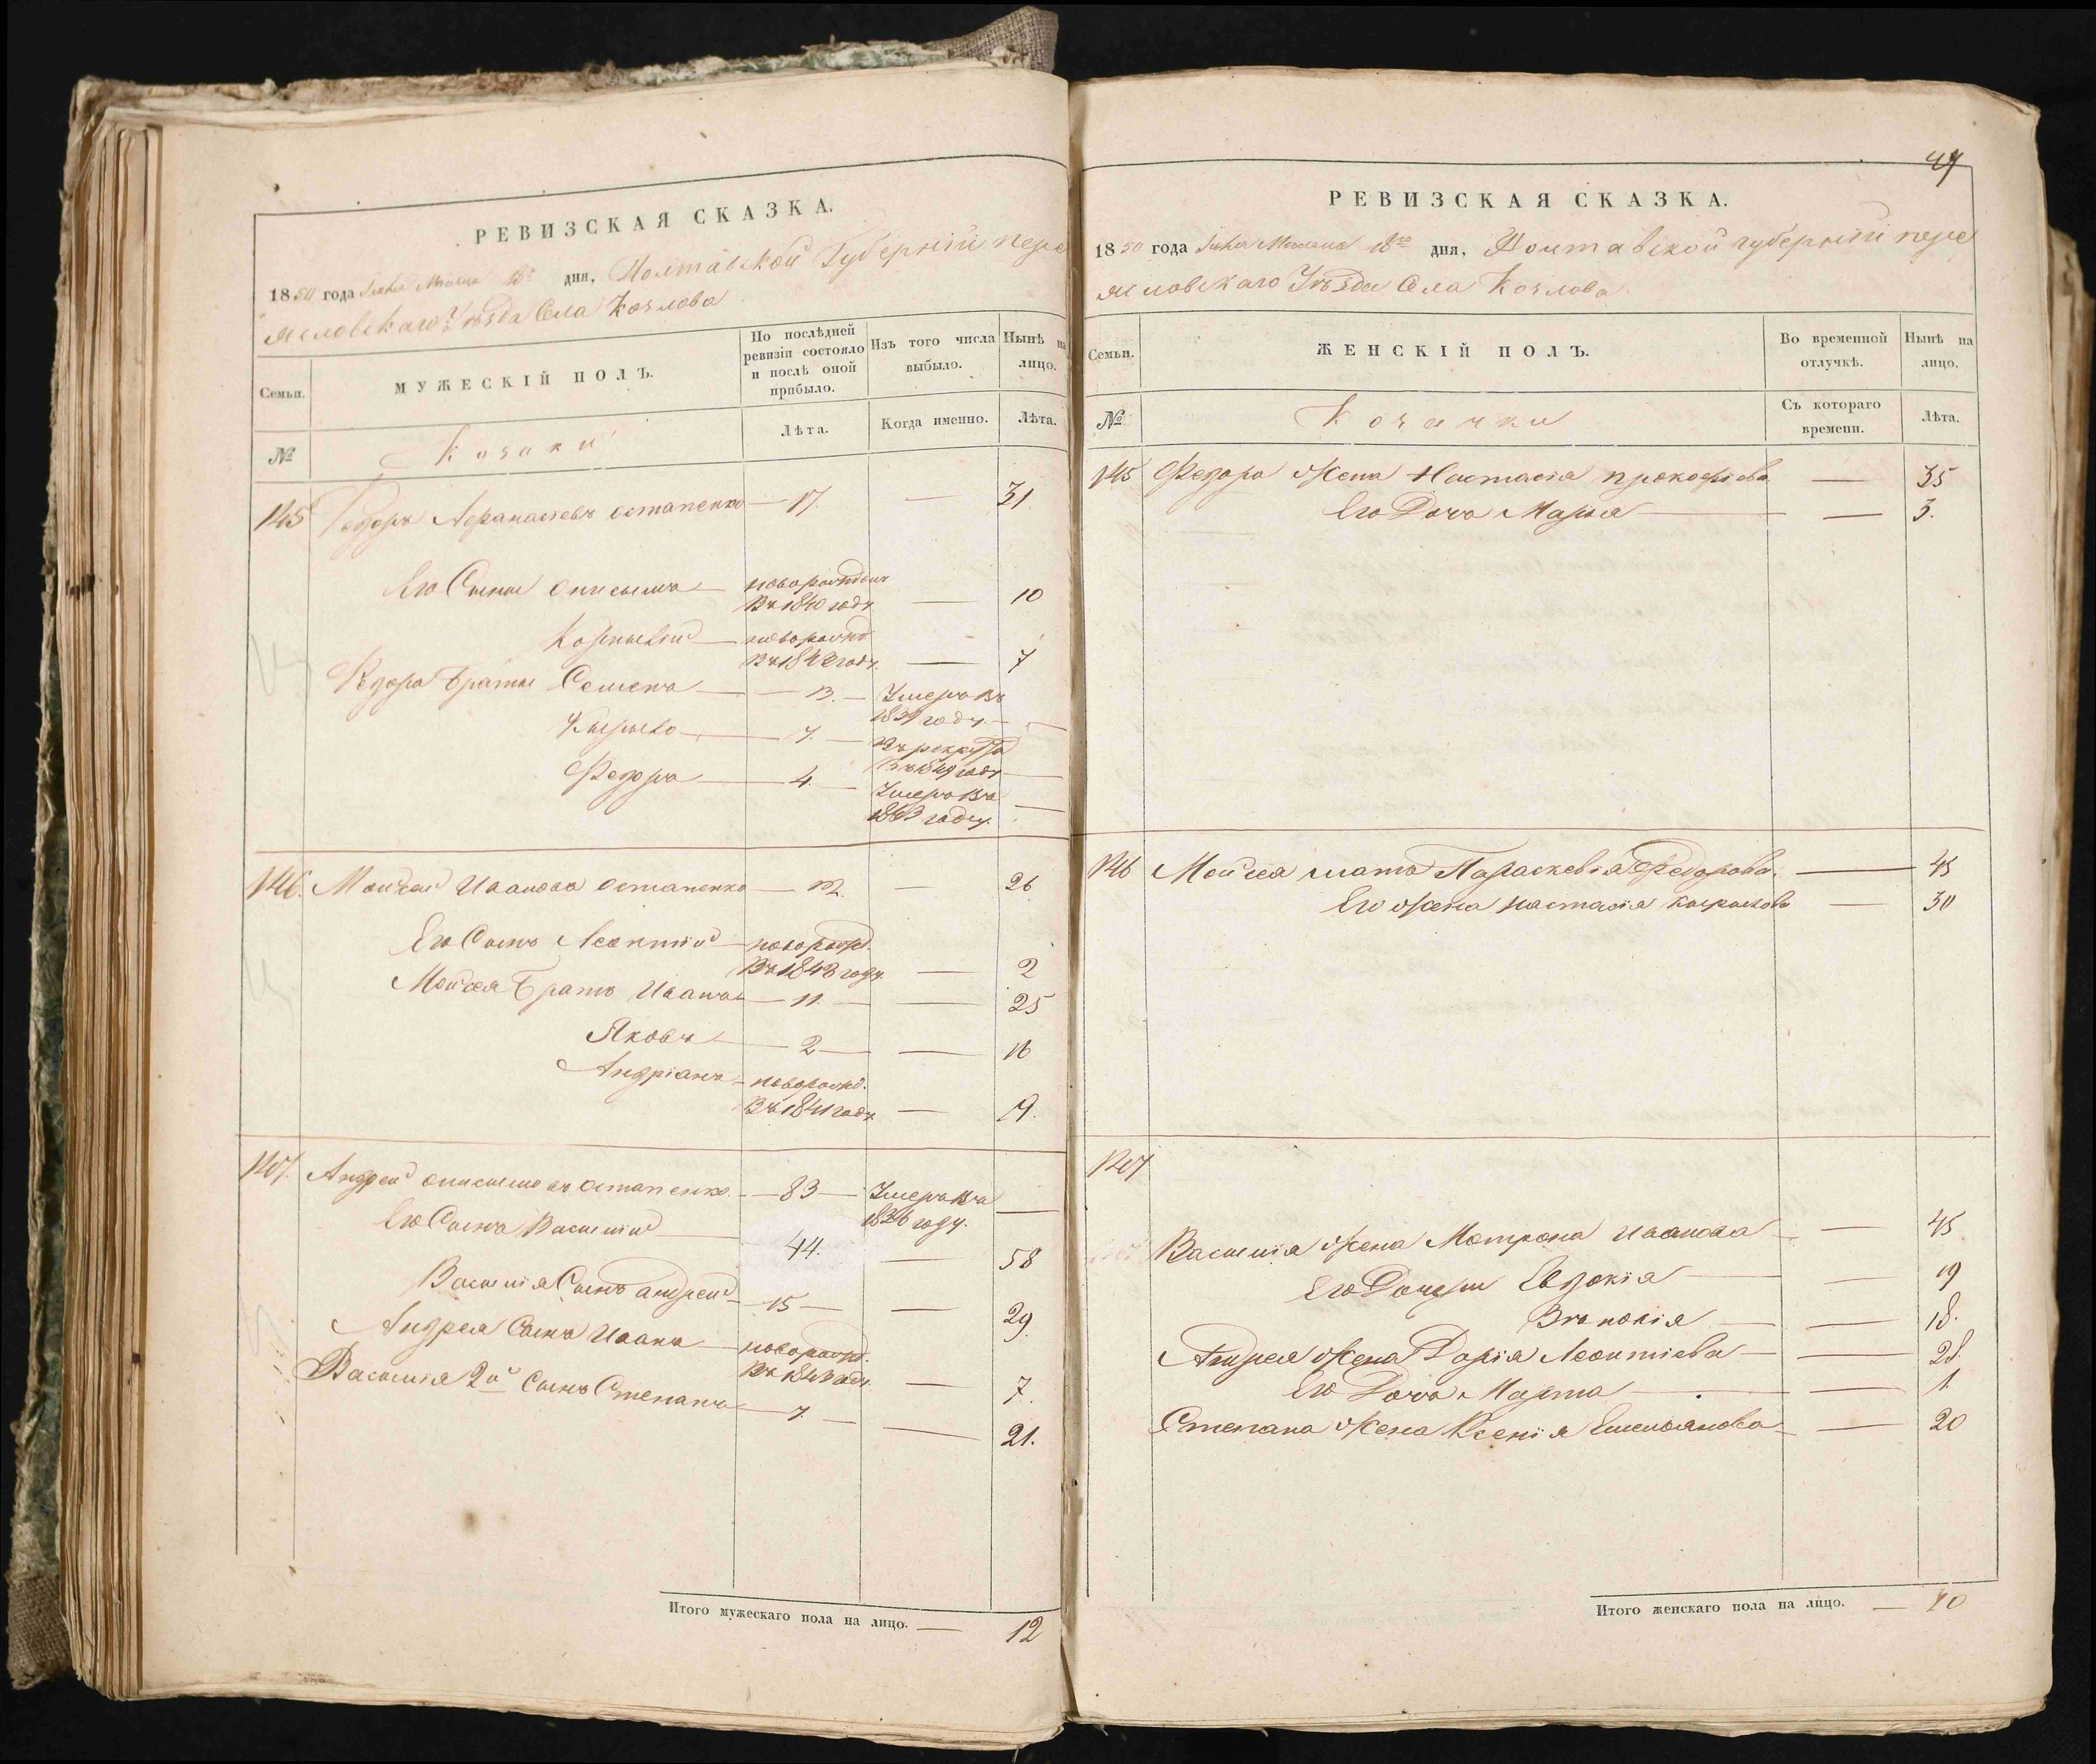 РЕВИЗСКАЯ СКАЗКА.
1850 года Месяца 18го дня, Полтавской Губернии пере
яславского Уезда Села Козлова
Семьи.
МУЖЕСКІЙ ПОЛЪ.
По послѣдней ревизіи состояло и послѣ оной прибыло.
Изъ того числа выбыло.
Нынѣ на лицо.
№
Козаки
Лѣта.
Когда именно.
Лѣта.
145 Федоръ Афанасіевъ остапенко — 17. — 31
Его Сыны онисимъ — новорожден въ 1840 году — 10
Корнилій — новорожд въ 1843 году. — 7
Федора братья Семенъ — 13. — Умеръ въ 1839 году. —
Кирило — 7. — Въ рекруты въ 1849 году —
Федоръ — 4. — Умеръ въ 1843 году. —
146. Моисей Ивановъ остапенко — 12. — 26
Его Сынъ Леонтій — новорожд. въ 1848 году. — 2
Моисея Братъ Иванъ — 11. — 25
Яковъ — 2 — — 16
Андріанъ — новорожд. въ 1841 году — 9.
147. Андрей онисимовъ остапенко. — 83 — Умеръ въ 1836 году. —
Его Сынъ Василій — 44. — 58
Василія Сынъ андрей — 15 — — 29
Андрея Сынъ Иванъ — новорожд. въ 1843 году. — 7.
Василія 2й Сынъ Степанъ — 7. — — 21.
Итого мужескаго пола на лицо. — 12
49
РЕВИЗСКАЯ СКАЗКА.
1850 года Месяца 18го дня, Полтавской губернии пере
яславского Уезда Села Козлова
Семьи.
ЖЕНСКІЙ ПОЛЪ.
Во временной отлучкѣ.
Нынѣ на лицо.
№
Козачки
Съ котораго времени.
Лѣта.
145 Федора Жена Настасія прокофіева — 35
Его Дочь Марія — — 3.
146 Моисея мать Параскевія Федорова. — 45
Его жена настасія кирилова — 30
147
Василія жена Матрона Иванова — 45
Его Дочери Евдокія — — 19
— — 18.
Андрея жена Дарія Леонтіева — — 28
Его Дочь Марта — — 1.
Степана жена Ксенія Емельянова — — 20
Итого женскаго пола на лицо. — 10